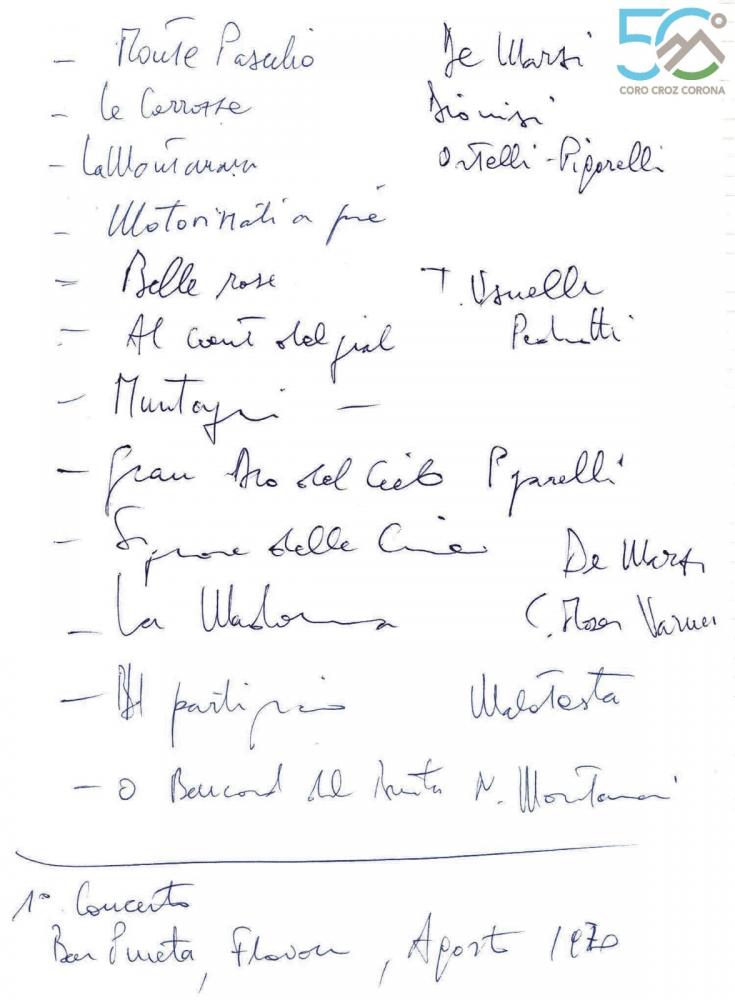 50°
CORO CROZ CORONA
- Monte Pasubio De Marzi
- Le Carrozze Dionisi
- La Montanara Ortelli - Pigarelli
- Motorizzati a pié
- Belle rose T. Usuelli
- Al cant del gial Pedrotti
- Muntagni -
- Gran Dio del Cielo Pigarelli
- Signore delle Cime De Marzi
- La Madonna C. Moser Varner
- partigiano Malatesta
- O del N. Montanari
1° Concerto
Bar Pineta, Flavon, Agosto 1970